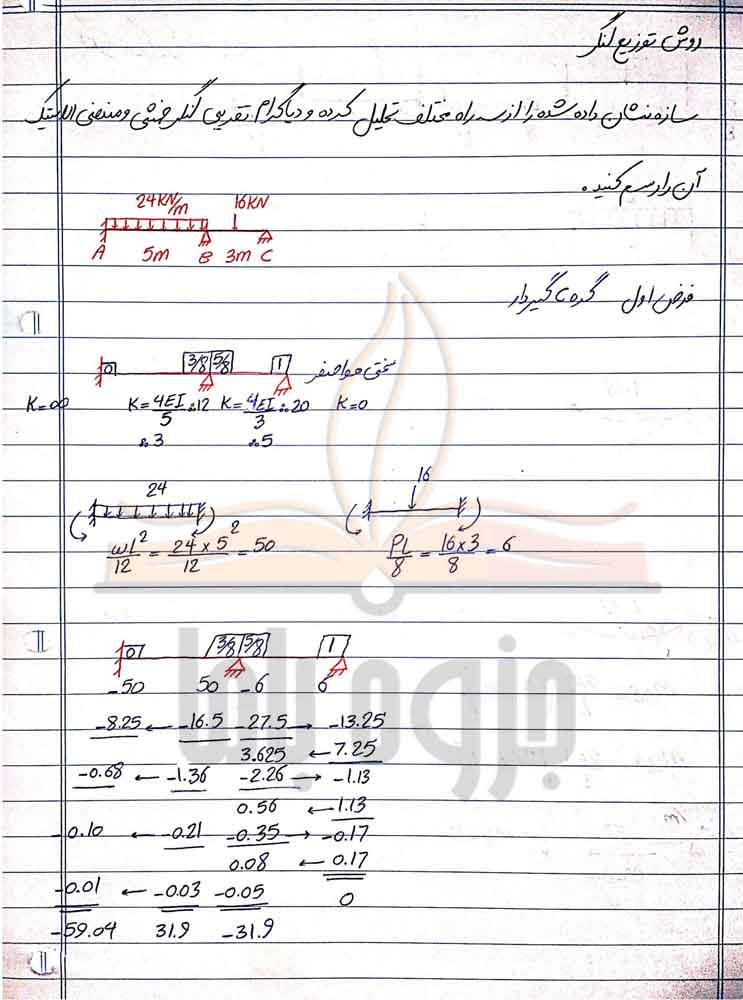 روش توزیع لنگر
سازه نشان داده شده را از سه راه مختلف تحلیل کرده و دیاگرام تقریبی لنگر خمشی و منحنی الاستیک
آن را رسم کنید.
24KN/m 16KN
A 5m B 3m C
فرض اول گره C گیردار
0 3/8 5/8 1 سختی هوا صفر
K=∞ K=4EI/5 ∴12 K=4EI/3 ∴20 K=0
∴3 ∴5
24 16
wl²/12 = 24×5²/12 = 50 PL/8 = 16×3/8 = 6
0 3/8 5/8 1
-50 50 -6 6
-8.25 ← -16.5 -27.5 → -13.25
3.625 ← 7.25
-0.68 ← -1.36 -2.26 → -1.13
0.56 ← 1.13
-0.10 ← -0.21 -0.35 → -0.17
0.08 ← 0.17
-0.01 ← -0.03 -0.05 0
-59.04 31.9 -31.9
جزوه یاب